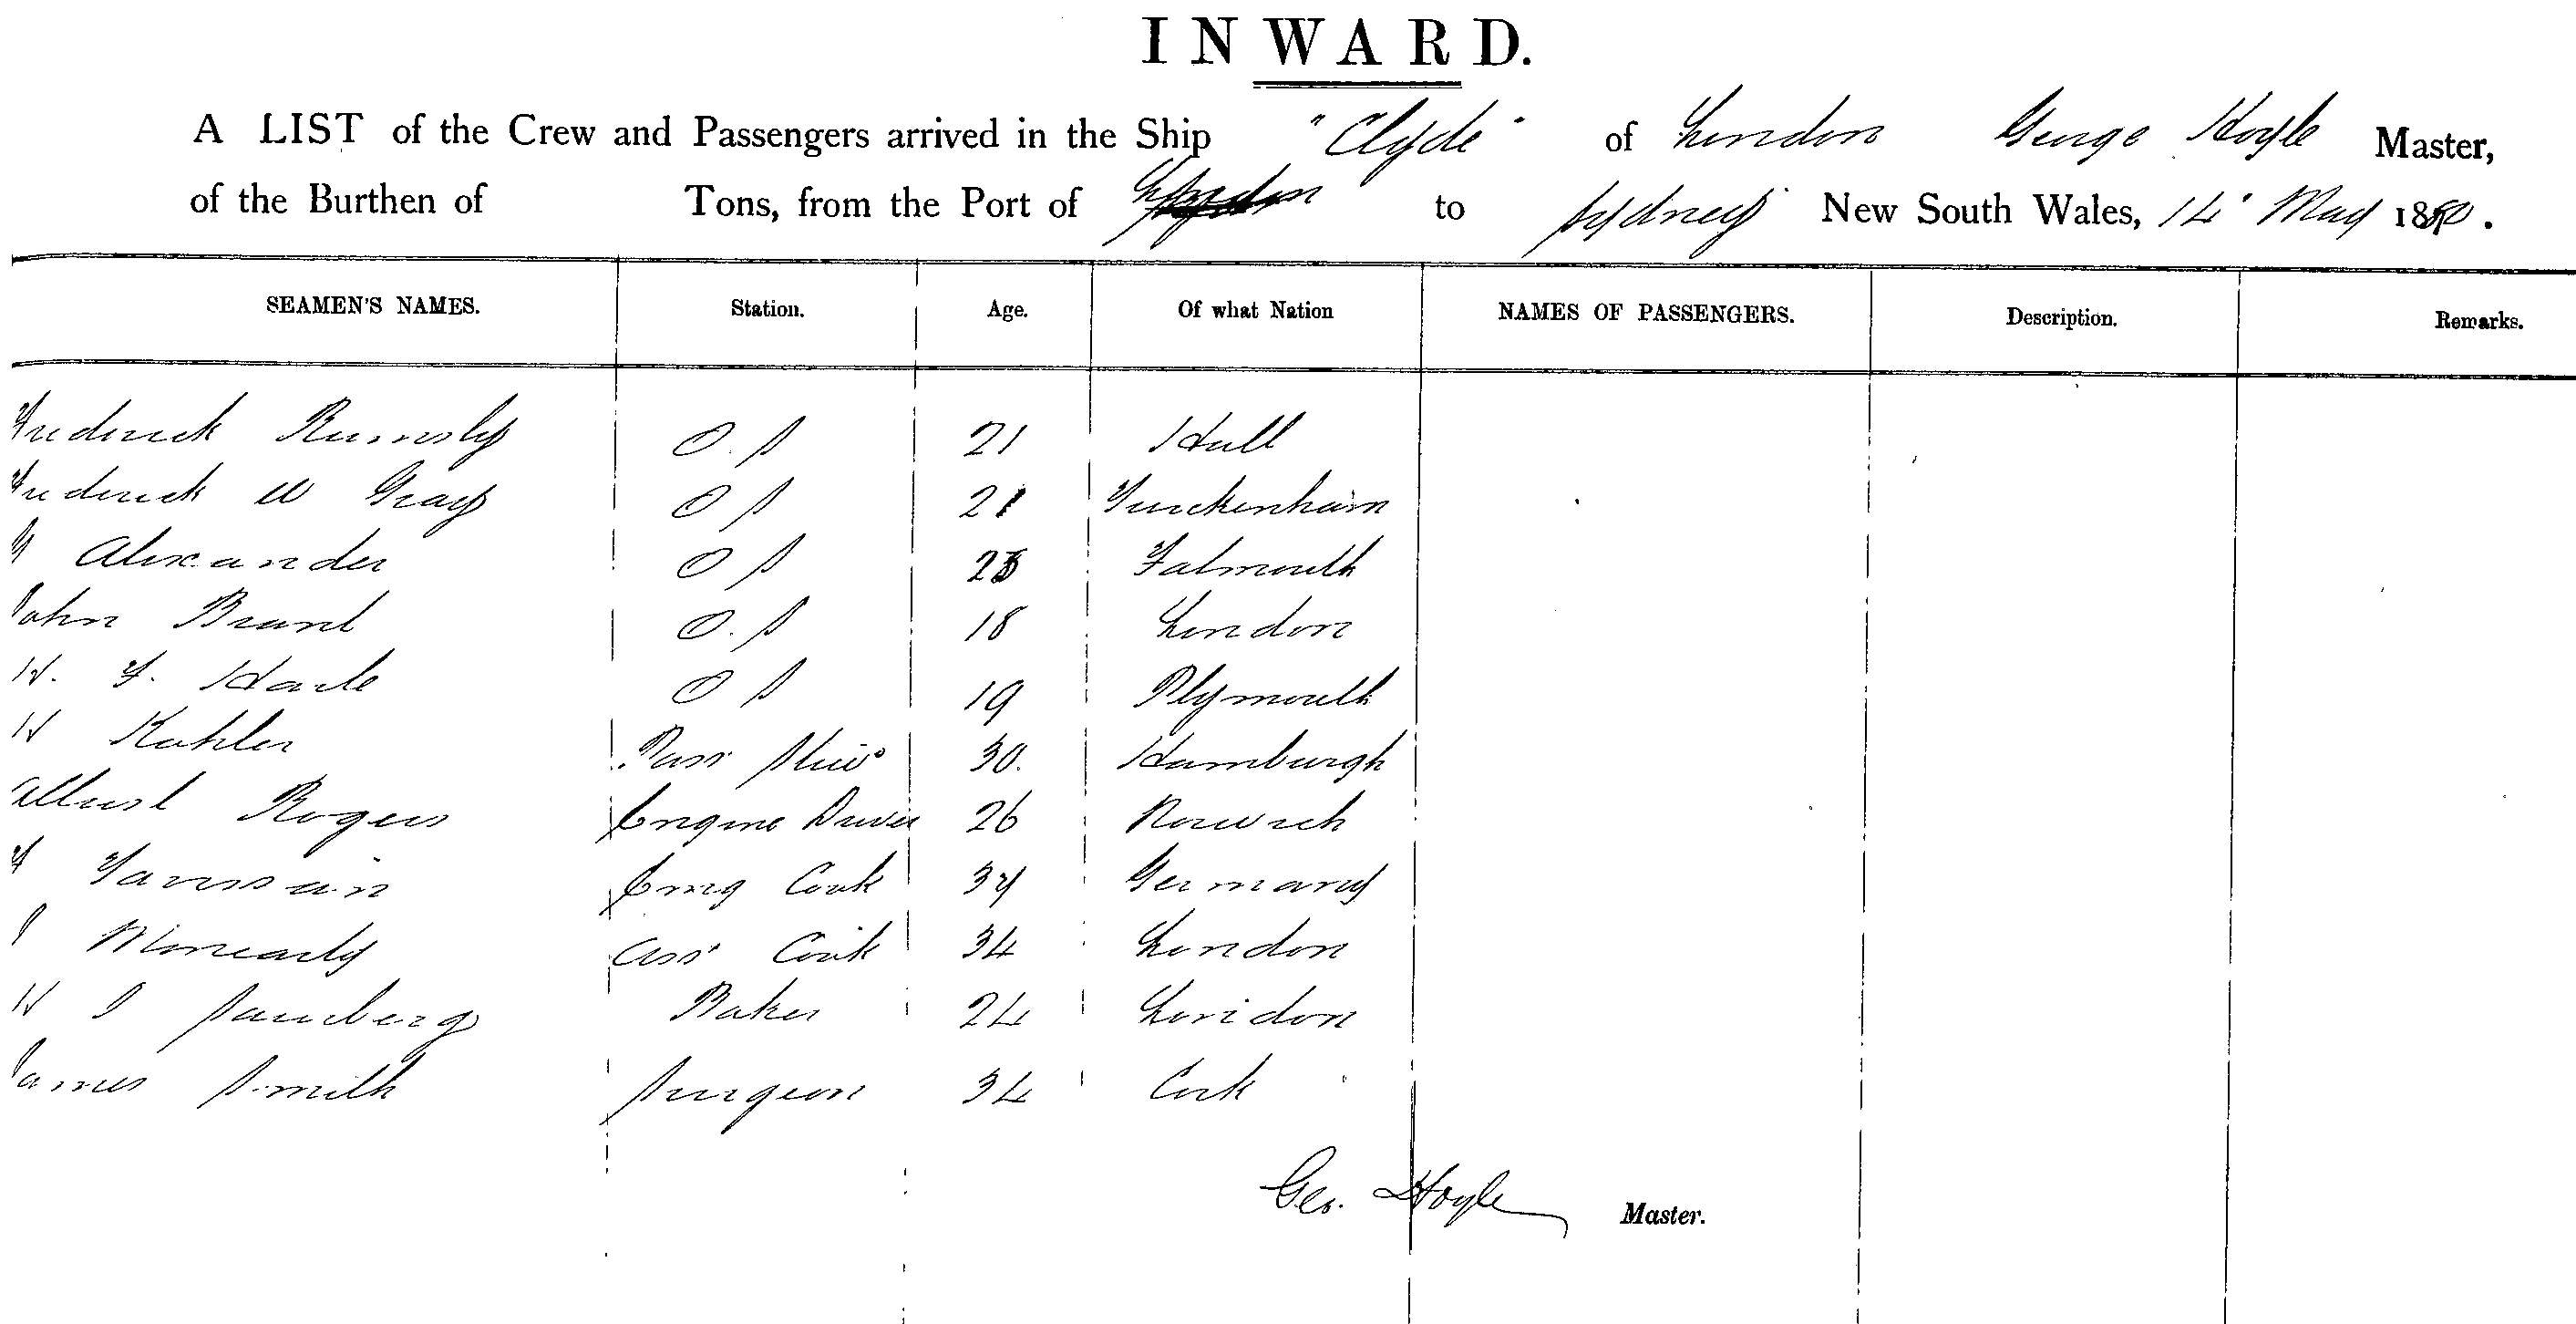 INWARD.
A LIST of the Crew and Passengers arrived in the Ship "Clyde" of London George Hoyle Master,
of the Burthen of Tons, from the Port of London to Sydney New South Wales, 14 May 1880.
SEAMEN'S NAMES. Station. Age. Of what Nation NAMES OF PASSENGERS. Description. Remarks.
Frederick Rumsly O.S 21 Hull
Frederick W Gray O S 21 Twickenham
Alexander O S 25 Falmouth
John Brand O.S 18 London
H. F. Harle O S 19 Plymouth
H Kahler Pass Stew 30. Hamburgh
Albert Rogers Engine Driver 26 Norwich
Yanssain Emig Cook 34 Germany
J Ass Cook 34 London
H J Samberg Baker 24 London
James Smith Surgeon 34 Cork
Geo. Hoyle Master.